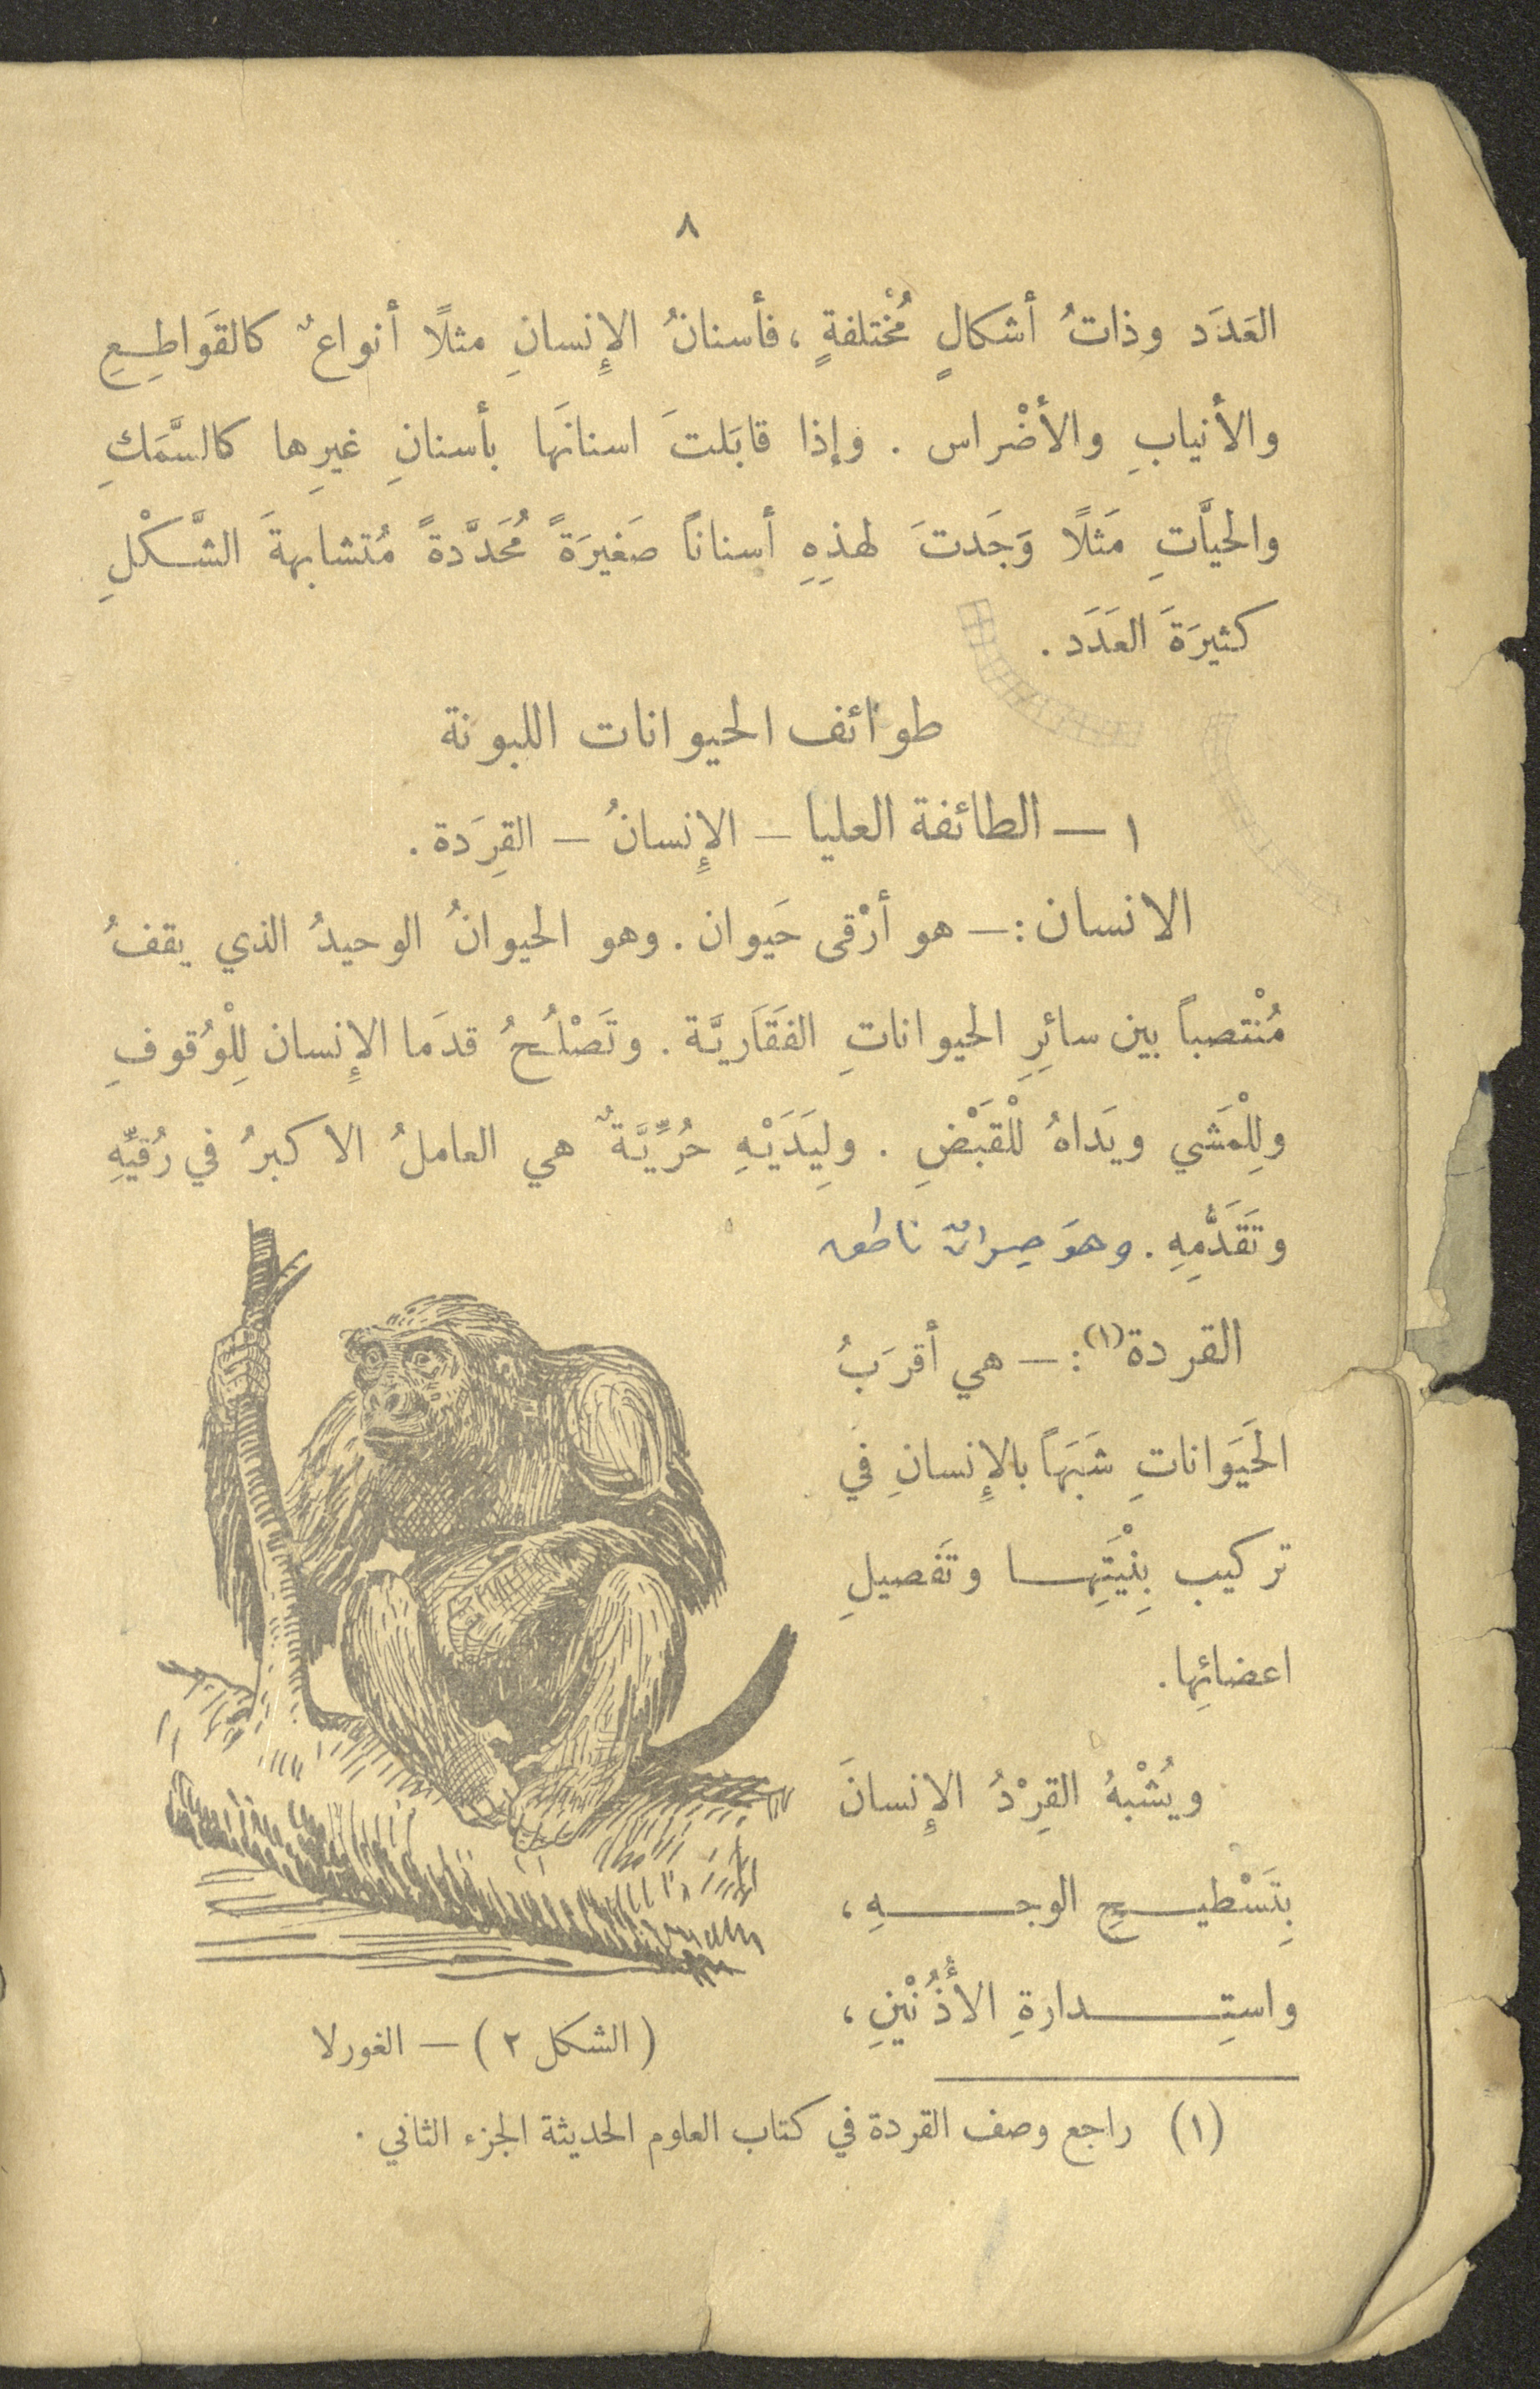 ٨
العَدَد وذاتُ أشكالٍ مُخْتلفةٍ ، فأسنانُ الإِنسانِ مثلًا أنواعٌ كالقَواطِعِ
والأنيابِ والأضْراس . وإذا قابَلتَ اسنانَها بأسنانِ غيرِها كالسَّمَكِ
والحيَّاتِ مَثلًا وَجَدتَ لهذِهِ أسناناً صَغيرَةً مُحَدَّدةً مُتشابهةَ الشَّكْلِ
كثيرَةَ العَدَد .
طوائف الحيوانات اللبونة
١ — الطائفة العليا — الإِنسانُ — القِرَدة .
الانسان :— هو أرْقى حَيوان . وهو الحيوانُ الوحيدُ الذي يقفُ
مُنْتصباً بين سائرِ الحيواناتِ الفَقَاريَّة . وتَصْلُحُ قدَما الإِنسان لِلْوُقوفِ
ولِلْمَشي ويَداهُ لْلقَبْضِ . ولِيَدَيْهِ حُرِّيَّةٌ هي العاملُ الاكبرُ في رُقيِّهِ
وتَقَدُّمِهِ . وهوَ حيوانٌ ناطق
القردة(١) :— هي أقرَبُ
الحَيَوَاناتِ شَبَهاً بالإِنسانِ في
تركيب بِنْيَتِهــا وتَفصيلِ
اعضائِها .
ويُشْبهُ القِرْدُ الإِنسانَ
بِتَسْطيــحِ الوجـــهِ ،
واستِــــدارةِ الأُذُنْينِ ،
( الشكل ٢ ) — الغورلا
(١) راجع وصف القردة في كتاب العلوم الحديثة الجزء الثاني .